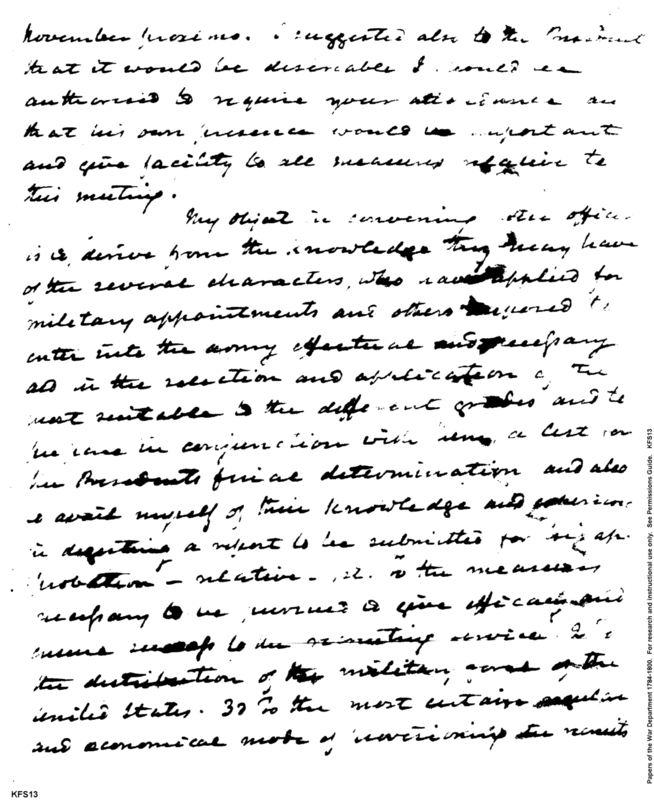 November proximo. I suggested also to the President
that it would be desireable I could be
authorised to require your attendance an
that his own presence would be important
and give facility to all measures relative to
this meeting.
My object in convening the offic
is to derive from the knowledge they may have
of the several characters, who have applied for
military appointments and others disposed to
enter into the army effectual and necessary
aid in the selection and application of the
most suitable to the different grades and to
prepare in conjunction with them, a list for
the Presidents final determination and also
to avail myself of their knowledge and experience
in digesting a report to be submitted for his ap
probation - relative - 1st. To the measures
necessary to be pursued to give efficacy and
ensure success to the recruiting service. 2d to
the distribution of the military force of the
United States. 3d To the most certain regular
and economical mode of provisioning the recruits
KFS13
Papers of the War Department 1784-1800. For research and instructional use only. See Permissions Guide. KFS13